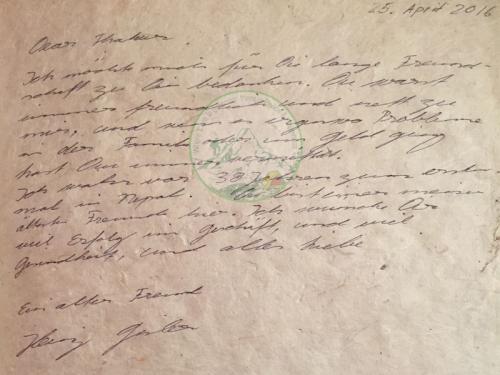 25. April 2016
Dear Thakur.
Ich möchte mich für die lange Freund-
schaft zu Dir bedanken. Du warst
immer freundlich und nett zu
mir, und wenn es irgenwo Probleme
in der Familie oder um Geld ging
hast Du immer
Ich war vor 38 Jahren zum ersten-
mal in Nepal. Du bist einer meiner
ältesten Freunde hier. Ich wünsche Dir
viel Erfolg im geschäft, und viel
Gesundheit, und alles liebe
Ein alter Freund